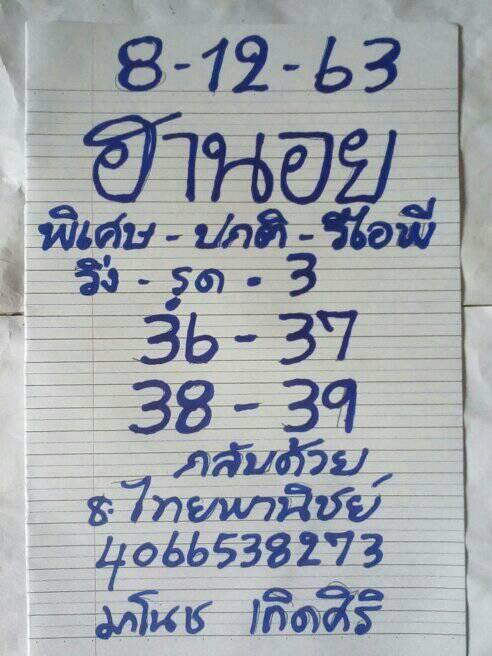 8-12-63
ฮานอย
พิเศษ - ปกติ - วีไอพี
วิ่ง - รูด - 3
36 - 37
38 - 39
กลับด้วย
ธ.ไทยพานิชย์
4066538273
มาโนช เกิดศิริ